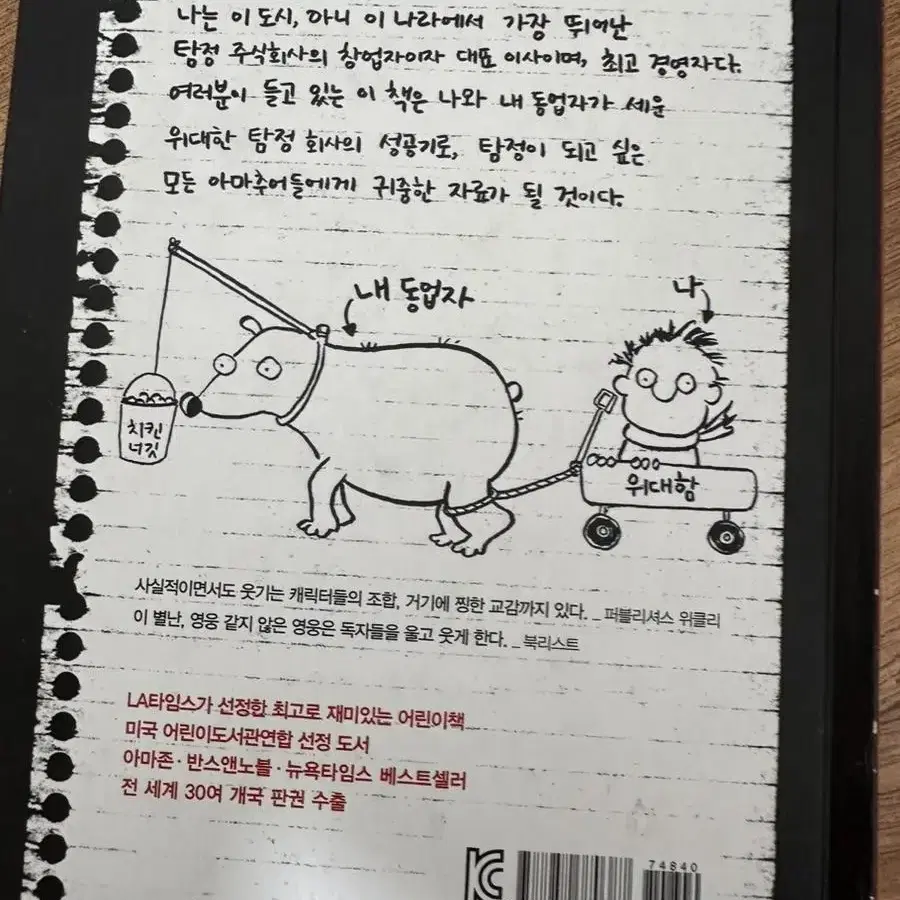 나는 이 도시, 아니 이 나라에서 가장 뛰어난
탐정 주식회사의 창업자이자 대표 이사이며, 최고 경영자다.
여러분이 들고 있는 이 책은 나와 내 동업자가 세운
위대한 탐정 회사의 성공기로, 탐정이 되고 싶은
모든 아마추어들에게 귀중한 자료가 될 것이다.
내 동업자
나
치킨
너깃
위대함
사실적이면서도 웃기는 캐릭터들의 조합, 거기에 찡한 교감까지 있다. _ 퍼블리셔스 위클리
이 별난, 영웅 같지 않은 영웅은 독자들을 울고 웃게 한다. _ 북리스트
LA타임스가 선정한 최고로 재미있는 어린이책
미국 어린이도서관연합 선정 도서
아마존·반스앤노블·뉴욕타임스 베스트셀러
전 세계 30여 개국 판권 수출
KC
74840